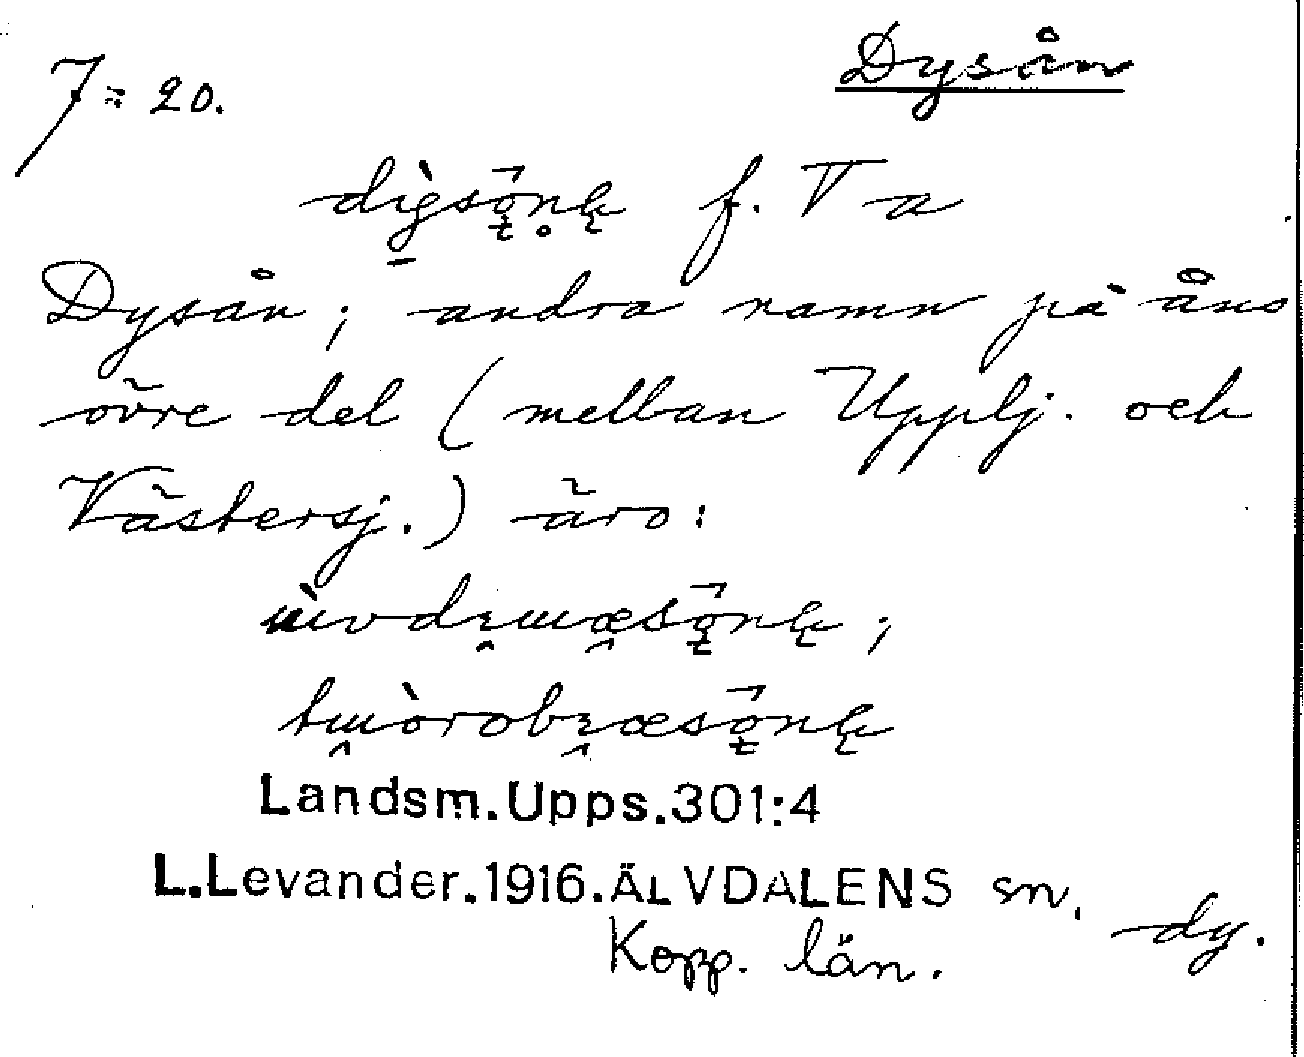 Dysån
7 = 20.
f. V a
Dysån; andra namn på åns
övre del (mellan Upplj. och
Västersj.) äro:
;
Landsm.Upps.301:4
L.Levander.1916.ÄLVDALENS sn.
dy.
Kopp. län.